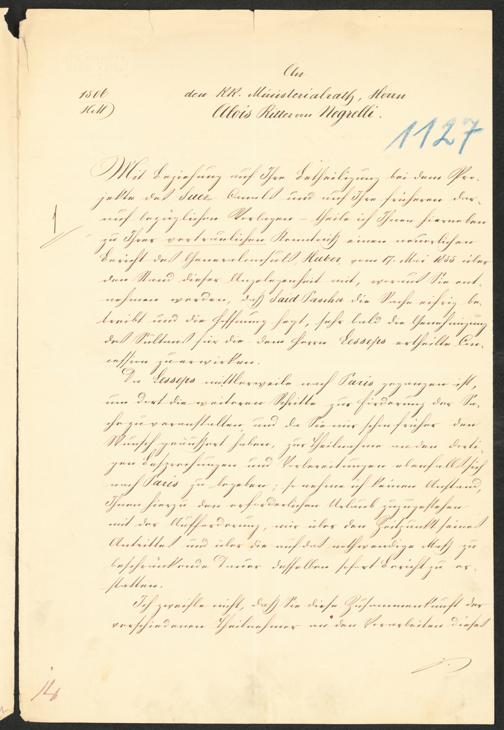 An
den KK. Ministerialrath, Herrn
Alois Ritter von Negrelli.
1127
Mit Beziehung auf Ihre Betheiligung bei dem Pro-
jekte des Suez Canals und auf Ihre früheren dar-
auf bezüglichen Vorlagen – theile ich Ihnen hierneben
zu Ihrer vertraulichen Kenntniß einen neuerlichen
Bericht des Generalconsuls Huber vom 17. Mai 1855 über
den Stand dieser Angelegenheit mit, woraus Sie ent-
nehmen werden, daß Said Pascha die Sache eifrig be-
treibt und die Hoffnung hegt, sehr bald die Genehmigung
des Sultans für die dem Herrn Lesseps ertheilte Con-
cession zu erwirken.
Da Lesseps mittlerweile nach Paris gegangen ist,
um dort die weiteren Schritte zur Förderung der Sa-
che zu veranstalten, und da Sie mir schon früher den
Wunsch geäußert haben, zur Theilnahme an den dorti-
gen Besprechungen und Vorbereitungen ebenfalls sich
nach Paris zu begeben; so nehme ich keinen Anstand,
Ihnen hierzu den erforderlichen Urlaub zuzugestehen
mit der Aufforderung, mir über den Zeitpunkt seines
Antrittes und über die auf das nothwendige Maß zu
beschränkende Dauer desselben sofort Bericht zu er-
statten.
Ich zweifle nicht, daß Sie diese Zusammenkunft der
verschiedenen Theilnehmer an den Vorarbeiten dieses